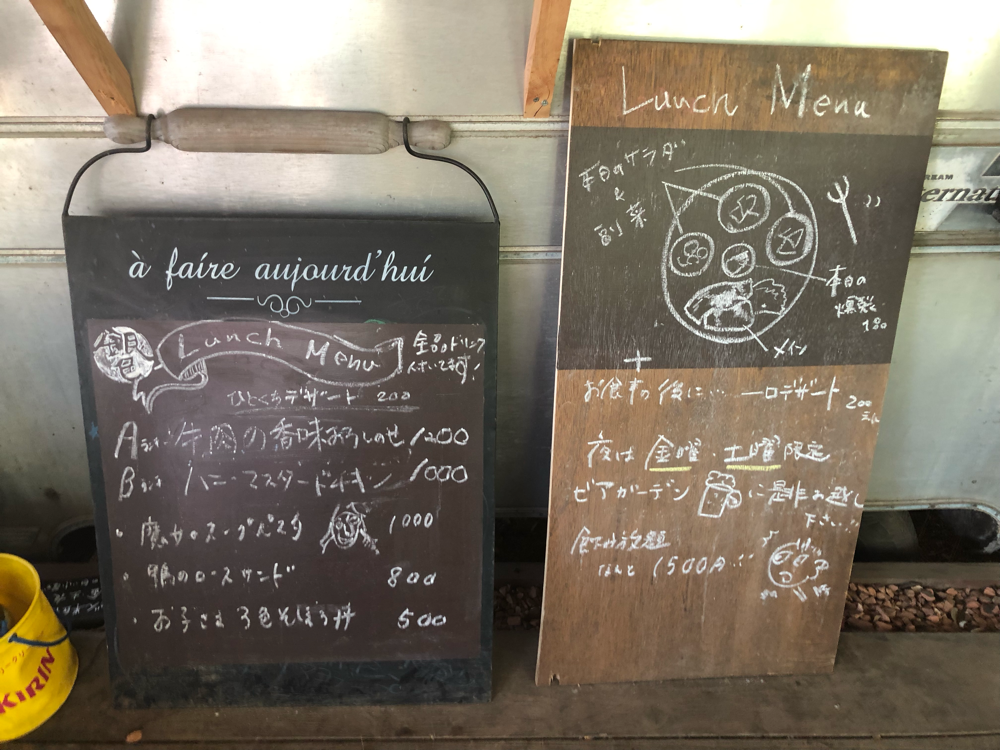 à faire aujourd'hui
Lunch Menu
全品ドリンク
ひとくちデザート 200
Aランチ 牛肉の香味おろしのせ 1200
Bランチ ハニーマスタードチキン 1000
スープパスタ 1000
鴨のロースサンド 800
お子さま3色そぼろ丼 500
KIRIN
Lunch Menu
本日のサラダ
&
副菜
本日の
メイン
+
お食事の後に… 一口デザート 200
夜は金曜・土曜限定
ビアガーデン に是非お越し
下さい
飲み放題
なんと 1500円